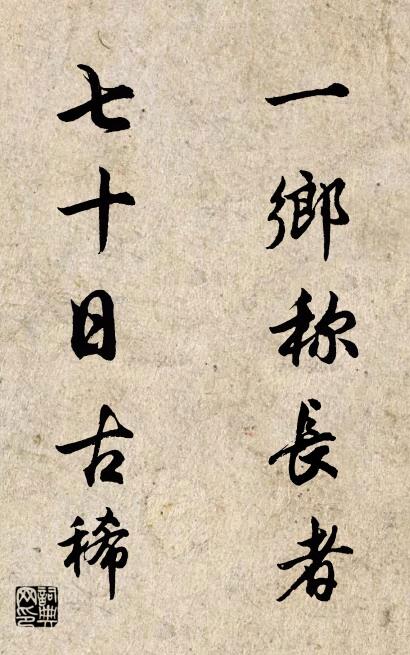 一鄉称長者
七十日古稀
詞典网印